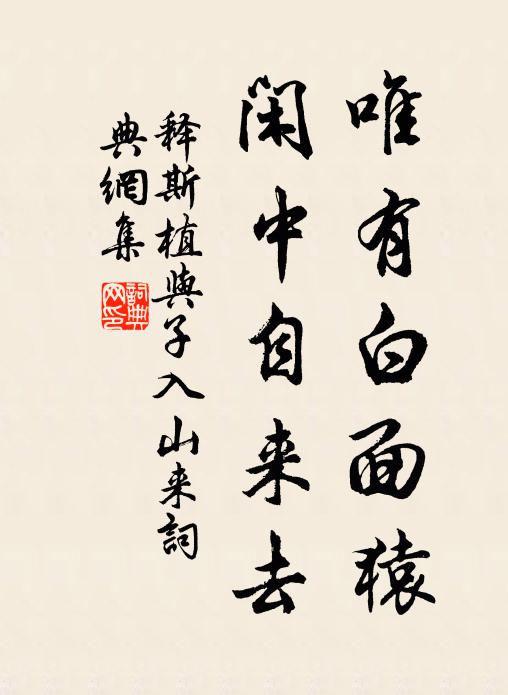 唯有白面猿
闲中自来去
释斯植與子入山来詞
典網集
詞典网印